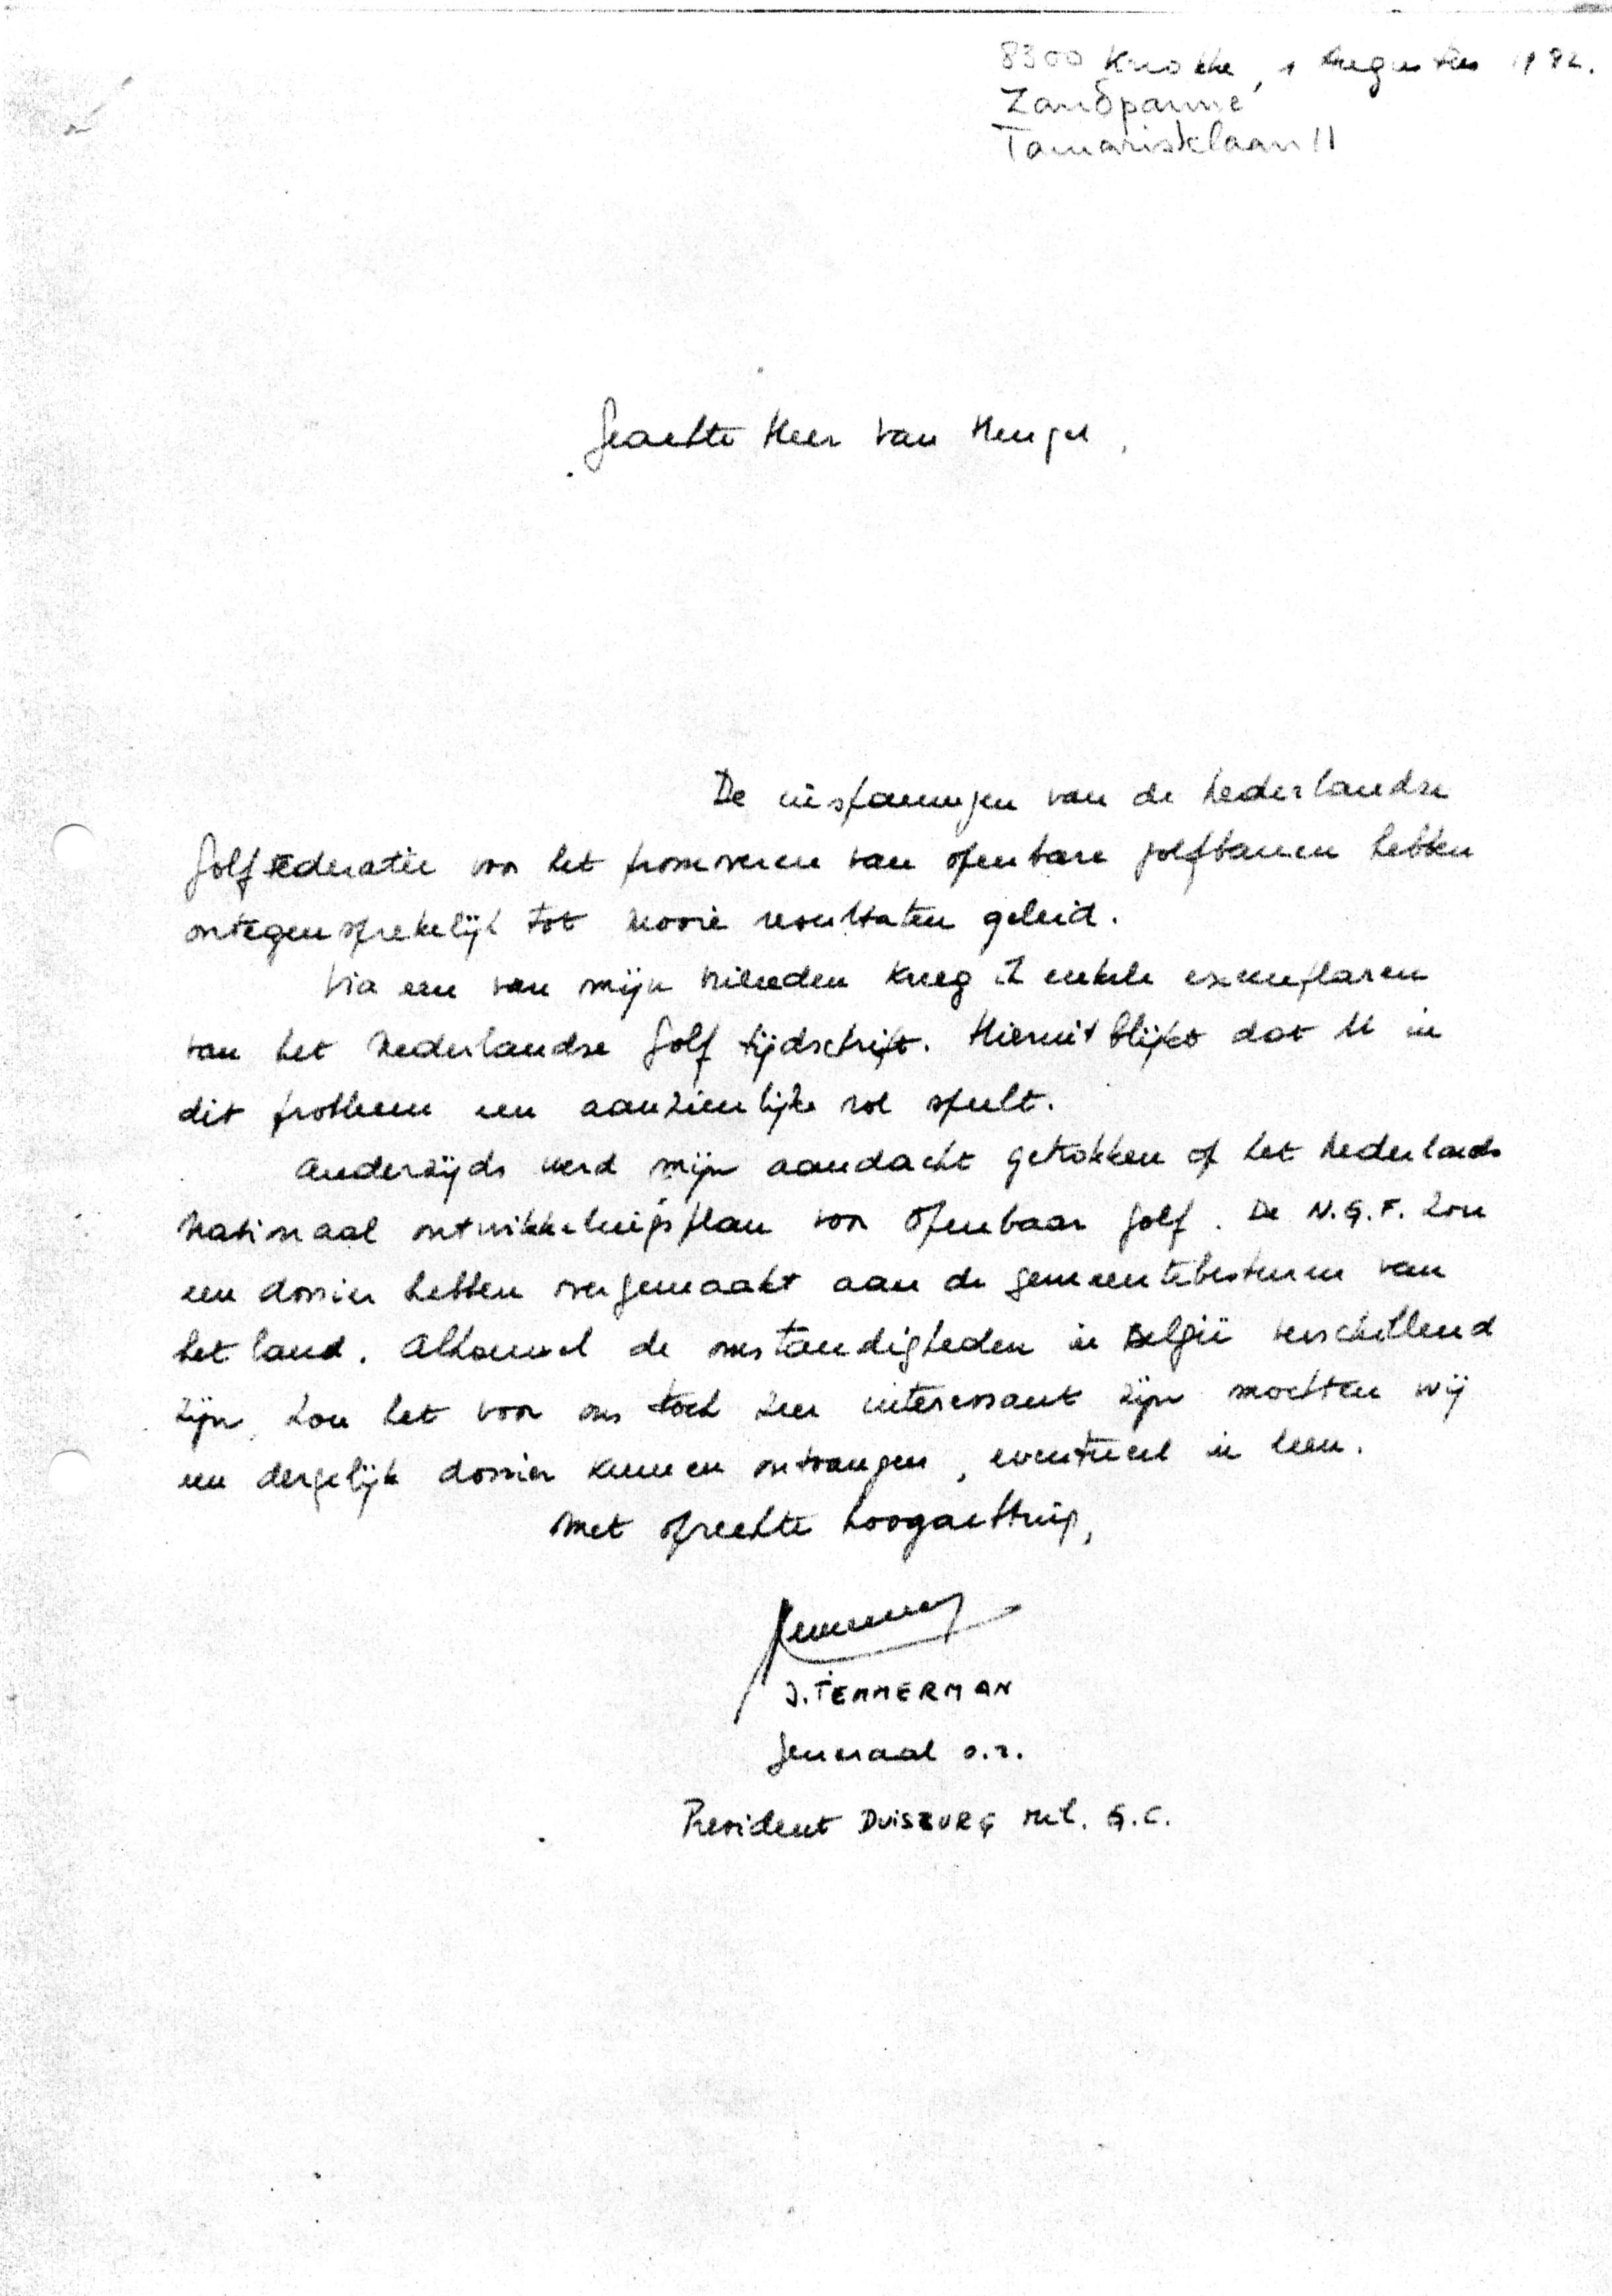 8300 Knokke, 1 Augustus 1982.
Zandpanne
Tamarisklaan 11
Geachte Heer Van Hengel,
De inspanningen van de Nederlandse
Golffederatie voor het promoveren van openbare golfbanen hebben
ontegensprekelijk tot mooie resultaten geleid.
Via een van mijn vrienden kreeg ik enkele exemplaren
van het Nederlandse Golf tijdschrift. Hieruit blijkt dat U in
dit probleem een aanzienlijke rol speelt.
Anderzijds werd mijn aandacht getrokken op het Nederlands
Nationaal ontwikkelingsplan voor Openbaar Golf. De N.G.F. zou
een dossier hebben overgemaakt aan de gemeentebesturen van
het land. Alhoewel de omstandigheden in België verschillend
zijn, zou het voor ons toch zeer interessant zijn mochten wij
een dergelijk dossier kunnen ontvangen, eventueel in leen.
Met oprechte hoogachting,
J. TEMMERMAN
Generaal o.r.
President DUISBURG Mil. G.C.